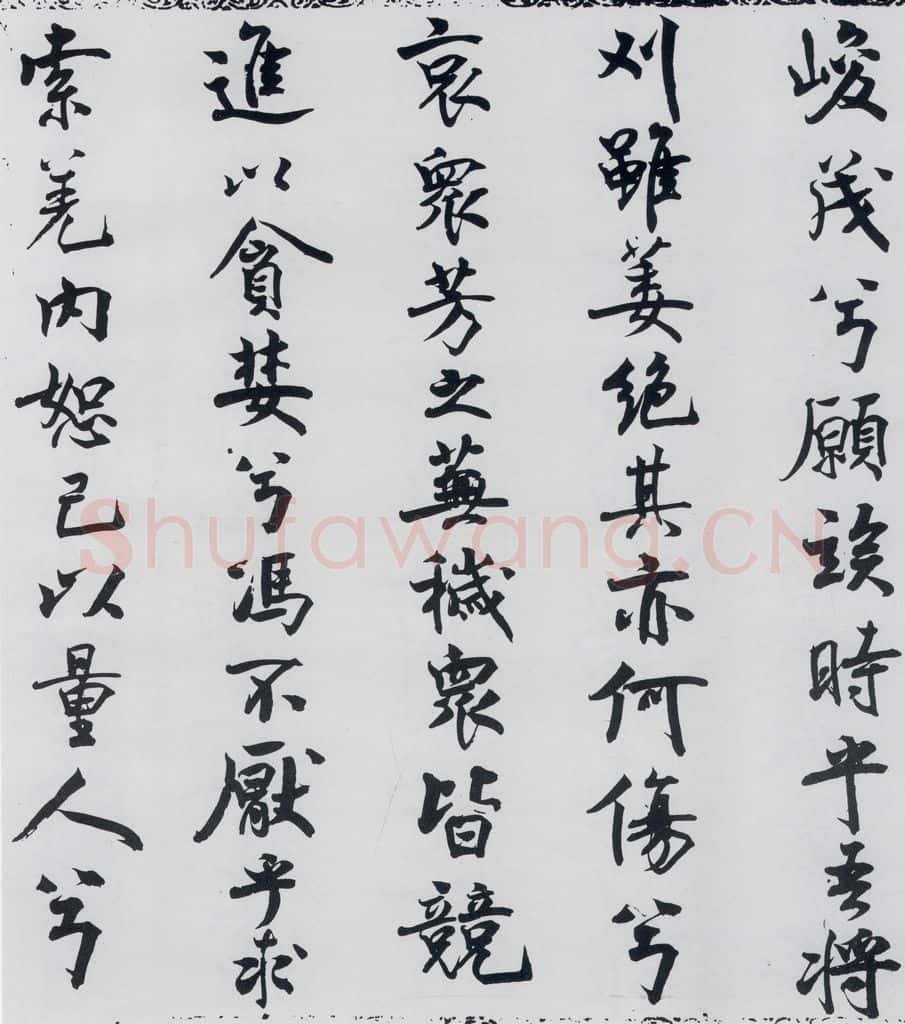 峻茂兮願竢時乎吾將
刈雖萎絕其亦何傷兮
哀衆芳之蕪穢衆皆競
進以貪婪兮馮不厭乎求
索羌內恕己以量人兮
Shufawang.CN